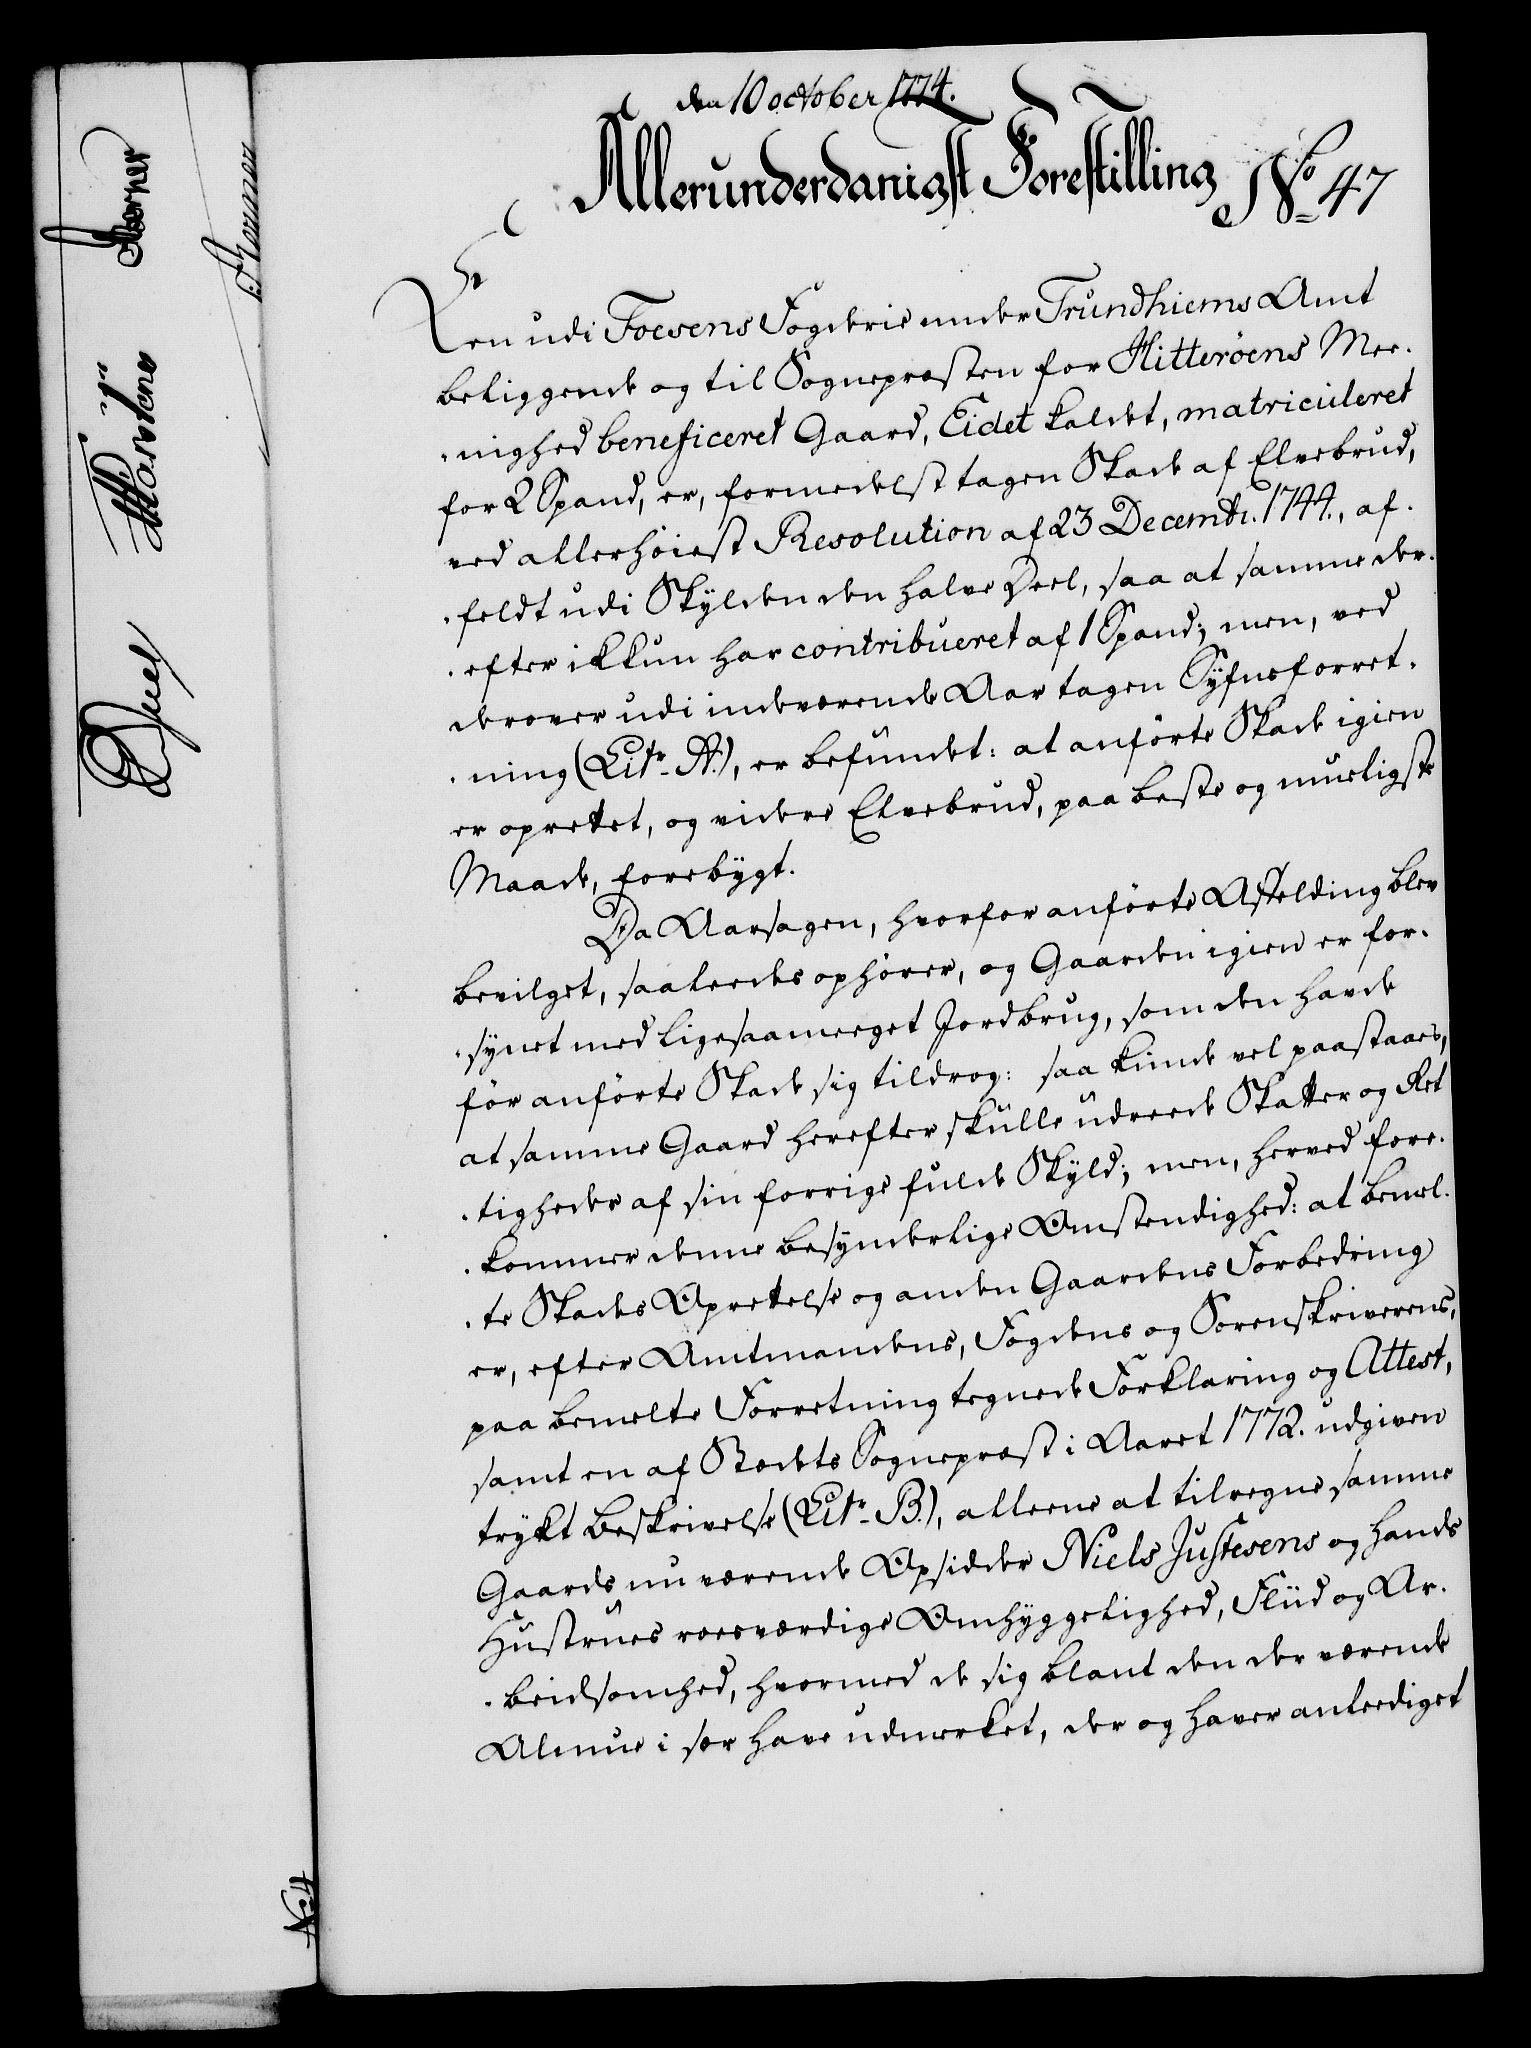 den 10 october 1774.
Allerunderdanigst Forestilling No 47
En udi Foesens Fogderie under Trundhiems Amt
beliggende og til Sognepræsten for Hitteröens Mee-
-nighed beneficeret Gaard, Eidet kaldet, matriculeret
for 2 Spand, er, formedelst tagen Skade af Elvebrud,
ved allerhöiest Resolution af 23 Decembr. 1744., af-
-feldt udi Skylden den halve Deel, saa at samme der-
-efter ikkun har contribueret af 1 Spand; men, ved
derover udi indeværende Aar tagen Syfnsforret-
-ning (Litr. A.), er befundet: at anförte Skade igien
er oprettet, og videre Elvebrud, paa beste og mueligste
Maade, forebygt.
Da Aarsagen, hvorfor anförte Affelding blev
bevilget, saaleedes ophörer, og Gaarden igien er for-
-synet med ligesaameeget Jordbrug, som den havde
för anförte Skade sig tildrog: saa kunde vel paastaaes,
at samme Gaard herefter skulle udreede Skatter og Ret
-tigheder af sin forrige fulde Skyld; men, herved fore-
-kommer denne besynderlige Omstendighed: at bemel-
-te Skades Oprettelse og anden Gaardens Forbedring
er, efter Amtmandens, Fogdens og Sorenskriverens,
paa bemelte Forretning tegnede Forklaring og Attest,
samt en af Stedets Sognepræst i Aaret 1772. udgiven
trykt Beskrivelse (Litr. B.), alleene at tilregne samme
Gaards nuværende Opsidder Niels Justesens og hands
Hustrues roesværdige Omhyggelighed, Fliid og Ar-
-beidsomhed, hvormed de sig blant den der værende
Almue i sær have udmerket, der og haver anleediget
Juel
Marstens
No 4